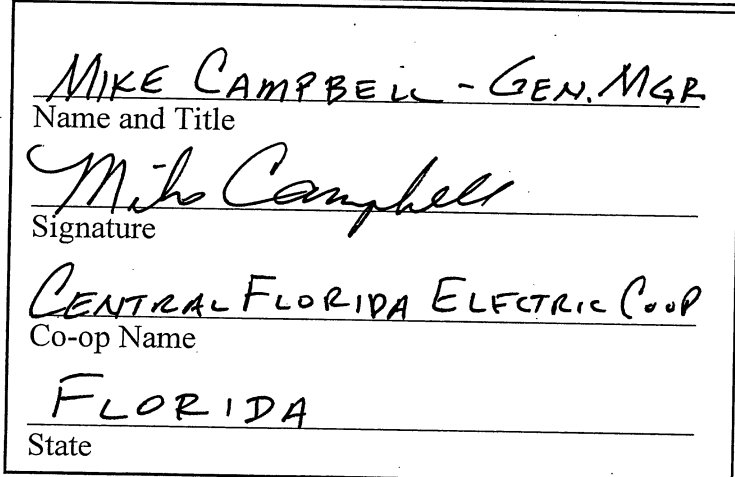 MIKE CAMPBELL - GEN. MGR
Name and Title
Mike Campbell
Signature
CENTRAL FLORIDA ELECTRIC COOP
Co-op Name
FLORIDA
State